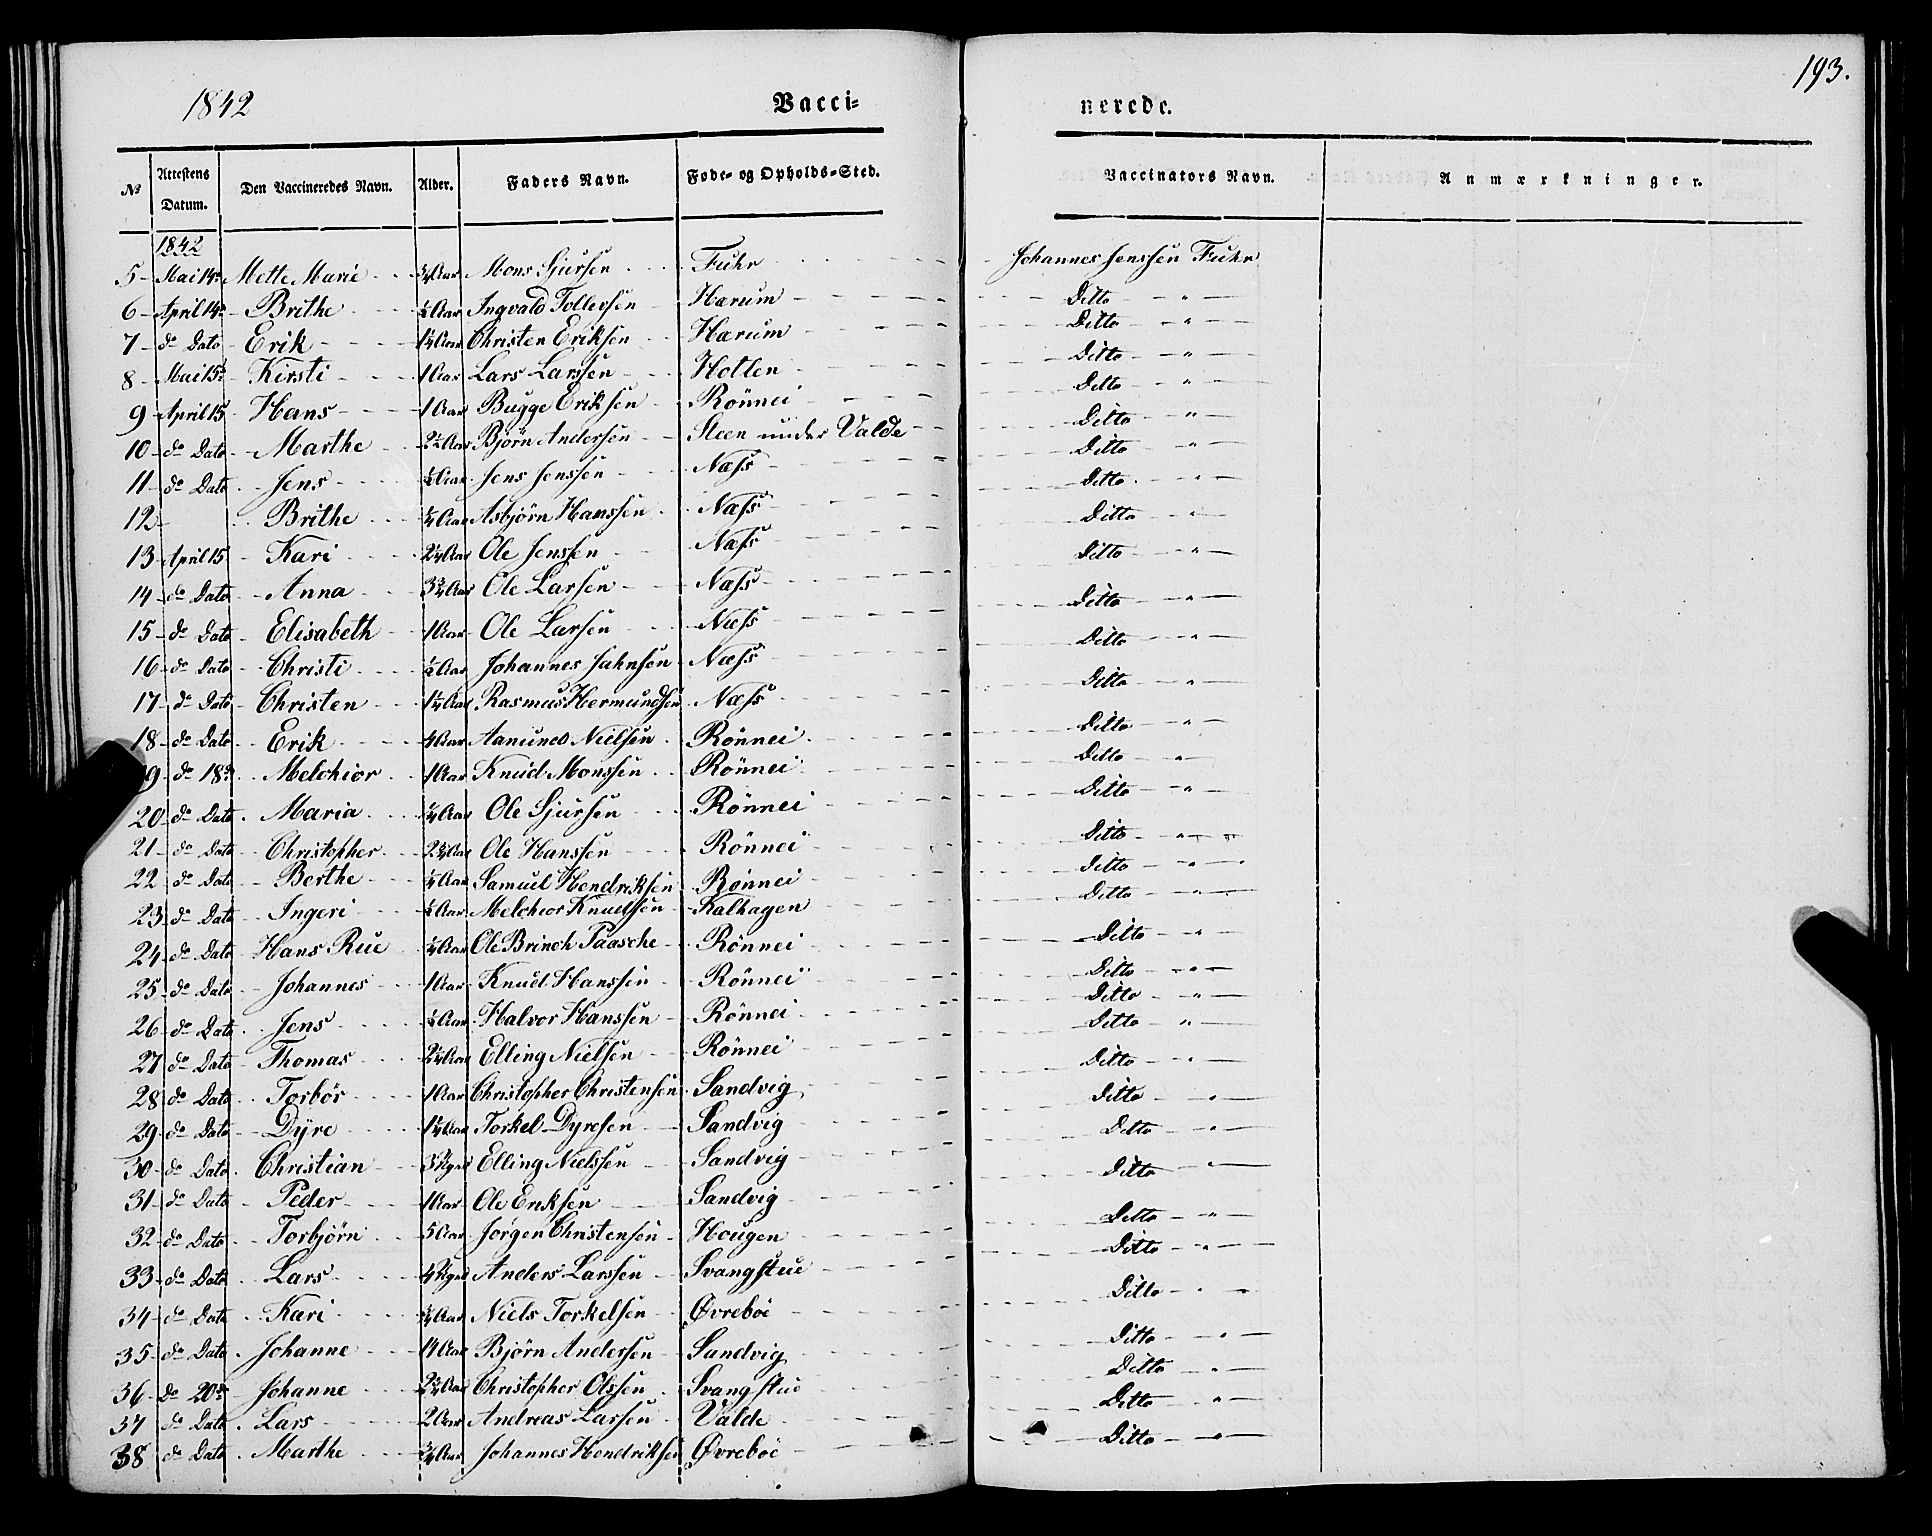 193.
1842 Vacci= nerede.
No Attestens Datum. Den Vaccineredes Navn. Alder. Faders Navn. Føde- og Opholds-Sted. Vaccinators Navn. Anmærkninger.
1842
5 Mai 14de Mette Marie ¾ Aar Mons Sjursen Fuhr Johannes Jenssen Fuhr
6 April 14de Brithe ½ Aar Ingvald Tollevsen Harum Ditto "
7 do Dato Erik 1¼ Aar Christen Eriksen Harum Ditto "
8 Mai 15de Kirsti 1 Aar Lars Larssen Holten Ditto "
9 April 15 Hans 1 Aar Bugge Eriksen Rönnei Ditto "
10 do Dato Marthe 2½ Aar Bjørn Andersen Steen under Valde Ditto "
11 do Dato Jens ½ Aar Jens Jenssen Næss Ditto "
12 Brithe ¼ Aar Asbjörn Hanssen Næss Ditto "
13 April 15 Kari 2¼ Aar Ole Jenssen Næss Ditto "
14 do Dato Anna 3¾ Aar Ole Larsen Næss Ditto "
15 do Dato Elisabeth 1 Aar Ole Larsen Næss Ditto "
16 do Dato Christi ½ Aar Johannes Jahnsen Næss Ditto "
17 do Dato Christen 1¼ Aar Rasmus Hermundsen Næss Ditto "
18 do Dato Erik 4 Aar Aamund Nielsen Rönnei Ditto "
19 do 18de Melchior 1 Aar Knud Monssen Rönnei Ditto "
20 do Dato Maria ¼ Aar Ole Sjursen Rönnei Ditto "
21 do Dato Christopher 2¾ Aar Ole Hanssen Rönnei Ditto "
22 do Dato Berthe ¼ Aar Samuel Hendriksen Rönnei Ditto "
23 do Dato Ingeri ½ Aar Melchior Knudssen Kalhagen Ditto "
24 do Dato Hans Rue ¼ Aar Ole Brinch Paasche Rönnei Ditto "
25 do Dato Johannes 1 Aar Knud Hanssen Rönnei Ditto "
26 do Dato Jens ½ Aar Halvor Hanssen Rönnei Ditto "
27 do Dato Thomas 2¼ Aar Elling Nielsen Rönnei Ditto "
28 do Dato Torbör 1 Aar Christopher Christensen Sandvig Ditto "
29 do Dato Dÿre 1¼ Aar Torkel Dyresen Sandvig Ditto "
30 do Dato Christian Elling Nielssen Sandvig Ditto "
31 do Dato Peder 1 Aar Ole Eriksen Sandvig Ditto "
32 do Dato Torbjörn 5 Aar Jørgen Christensen Hougen Ditto "
33 do Dato Lars Anders Larssen Svangstue Ditto "
34 do Dato Kari ¼ Aar Niels Torkelsen Øvreboe Ditto "
35 do Dato Johanne Aar Bjørn Andersen Sandvig Ditto "
36 do 20de Johanne 2¾ Aar Christopher Olssen Svangstue Ditto "
37 do Dato Lars 2 Aar Andreas Larsen Valde Ditto "
38 do Dato Marthe ¾ Aar Johannes Hendriksen Øvreboe